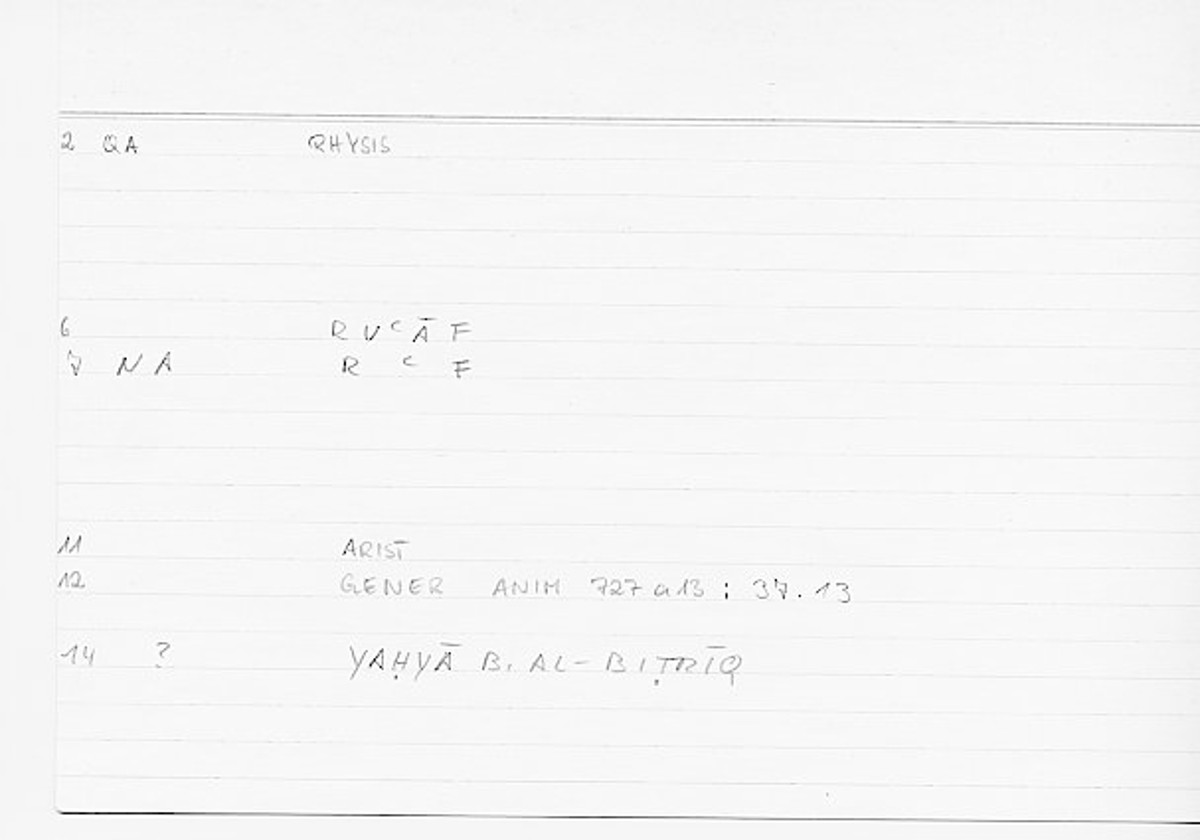 2 QA RHYSIS
6 R Uᶜ Ā F
7 N A R ᶜ F
11 ARIST
12 GENER ANIM 727 a 13 : 37.13
14 ? YAḤYĀ B. AL-BIṬRĪQ